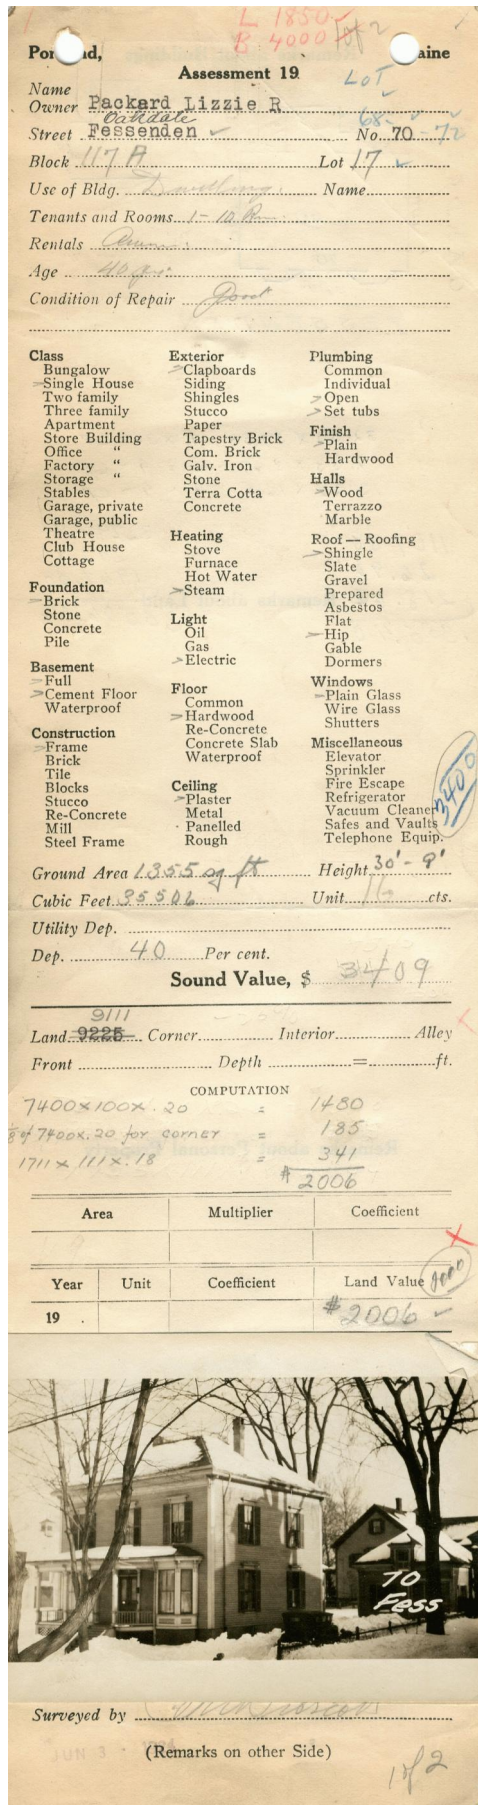 L 1850
B 4000 1 of 2
Portland, Maine
Assessment 19
LOT
Name
Owner Packard Lizzie R
Oakdale 68-
Street Fessenden No. 70-72
Block 117 A Lot 17
Use of Bldg. Dwelling. Name
Tenants and Rooms 1-10 Rm
Rentals
Age 40 yrs.
Condition of Repair Good
Class
Bungalow
Single House
Two family
Three family
Apartment
Store Building
Office "
Factory "
Storage "
Stables
Garage, private
Garage, public
Theatre
Club House
Cottage
Foundation
Brick
Stone
Concrete
Pile
Basement
Full
Cement Floor
Waterproof
Construction
Frame
Brick
Tile
Blocks
Stucco
Re-Concrete
Mill
Steel Frame
Exterior
Clapboards
Siding
Shingles
Stucco
Paper
Tapestry Brick
Com. Brick
Galv. Iron
Stone
Terra Cotta
Concrete
Heating
Stove
Furnace
Hot Water
Steam
Light
Oil
Gas
Electric
Floor
Common
Hardwood
Re-Concrete
Concrete Slab
Waterproof
Ceiling
Plaster
Metal
Panelled
Rough
Plumbing
Common
Individual
Open
Set tubs
Finish
Plain
Hardwood
Halls
Wood
Terrazzo
Marble
Roof — Roofing
Shingle
Slate
Gravel
Prepared
Asbestos
Flat
Hip
Gable
Dormers
Windows
Plain Glass
Wire Glass
Shutters
Miscellaneous
Elevator
Sprinkler
Fire Escape
Refrigerator
Vacuum Cleaner
Safes and Vaults
Telephone Equip.
3400
Ground Area 1355 sq ft Height 30'-9'
Cubic Feet 35506 Unit 16 cts.
Utility Dep.
Dep. 40 Per cent.
Sound Value, $ 3409
9111
Land 9225 Corner Interior Alley
Front Depth = ft.
COMPUTATION
7400 x 100 x .20 = 1480
1/8 of 7400 x .20 for corner = 185
1711 x 111 x .18 = 341
$ 2006
Area Multiplier Coefficient
Year Unit Coefficient Land Value 2000
19 $ 2006
70
Fess
Surveyed by
JUN 3
(Remarks on other Side)
1 of 2